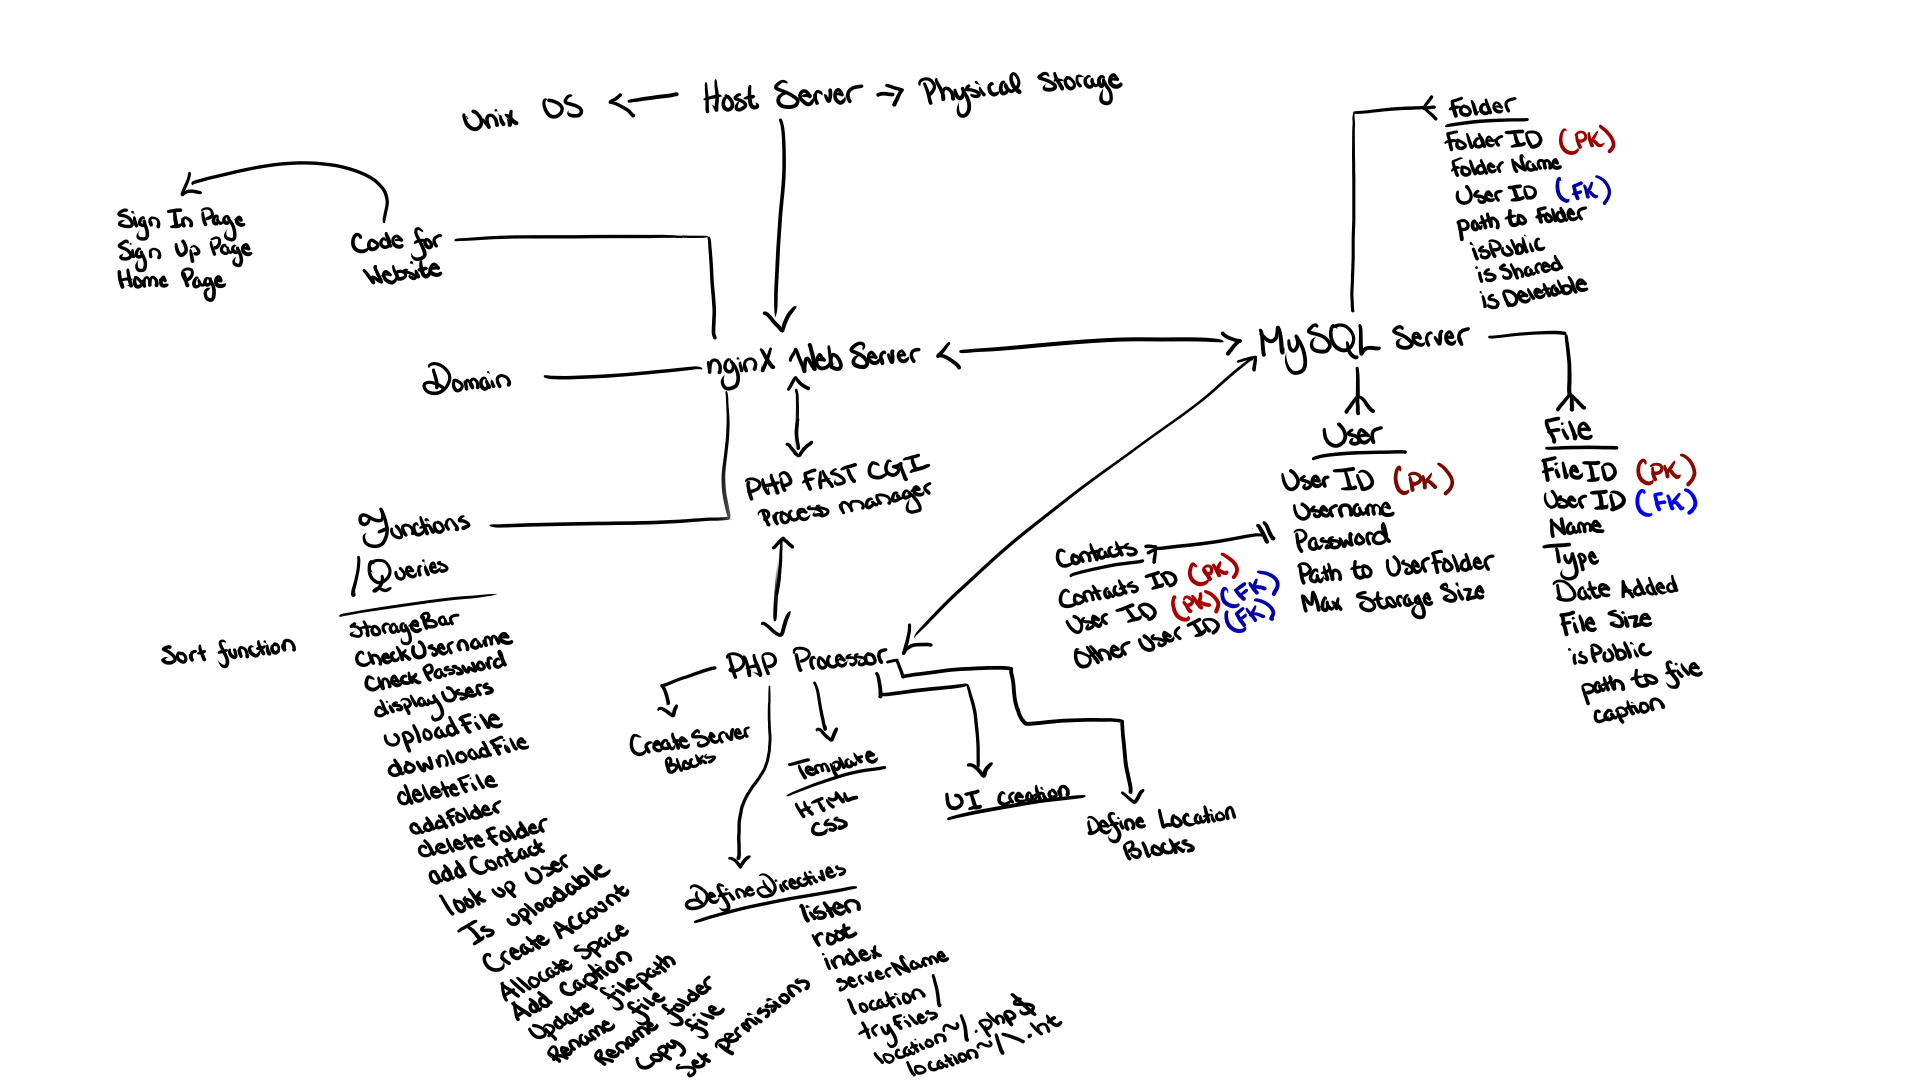 Unix OS
Host Server
Physical Storage
Sign In Page
Sign Up Page
Home Page
Code for
Website
Domain
nginX Web Server
MySQL Server
Folder
Folder ID (PK)
Folder Name
User ID (FK)
path to folder
isPublic
is Shared
is Deletable
PHP FAST CGI
Process manager
User
User ID (PK)
Username
Password
Path to UserFolder
Max Storage Size
File
File ID (PK)
User ID (FK)
Name
Type
Date Added
File Size
isPublic
path to file
caption
Contacts
Contacts ID (PK)
User ID (PK)(FK)
Other User ID (FK)
Functions
/ Queries
Sort function
StorageBar
CheckUsername
Check Password
displayUsers
uploadFile
downloadFile
deleteFile
addFolder
deleteFolder
add Contact
look up User
Is uploadable
Create Account
Allocate Space
Add Caption
Update filepath
Rename file
Rename folder
Copy file
Set permissions
PHP Processor
Create Server
Blocks
Template
HTML
CSS
UI creation
Define Location
Blocks
Define Directives
listen
root
index
serverName
location /
tryFiles
location~/.php$
location~/\.ht